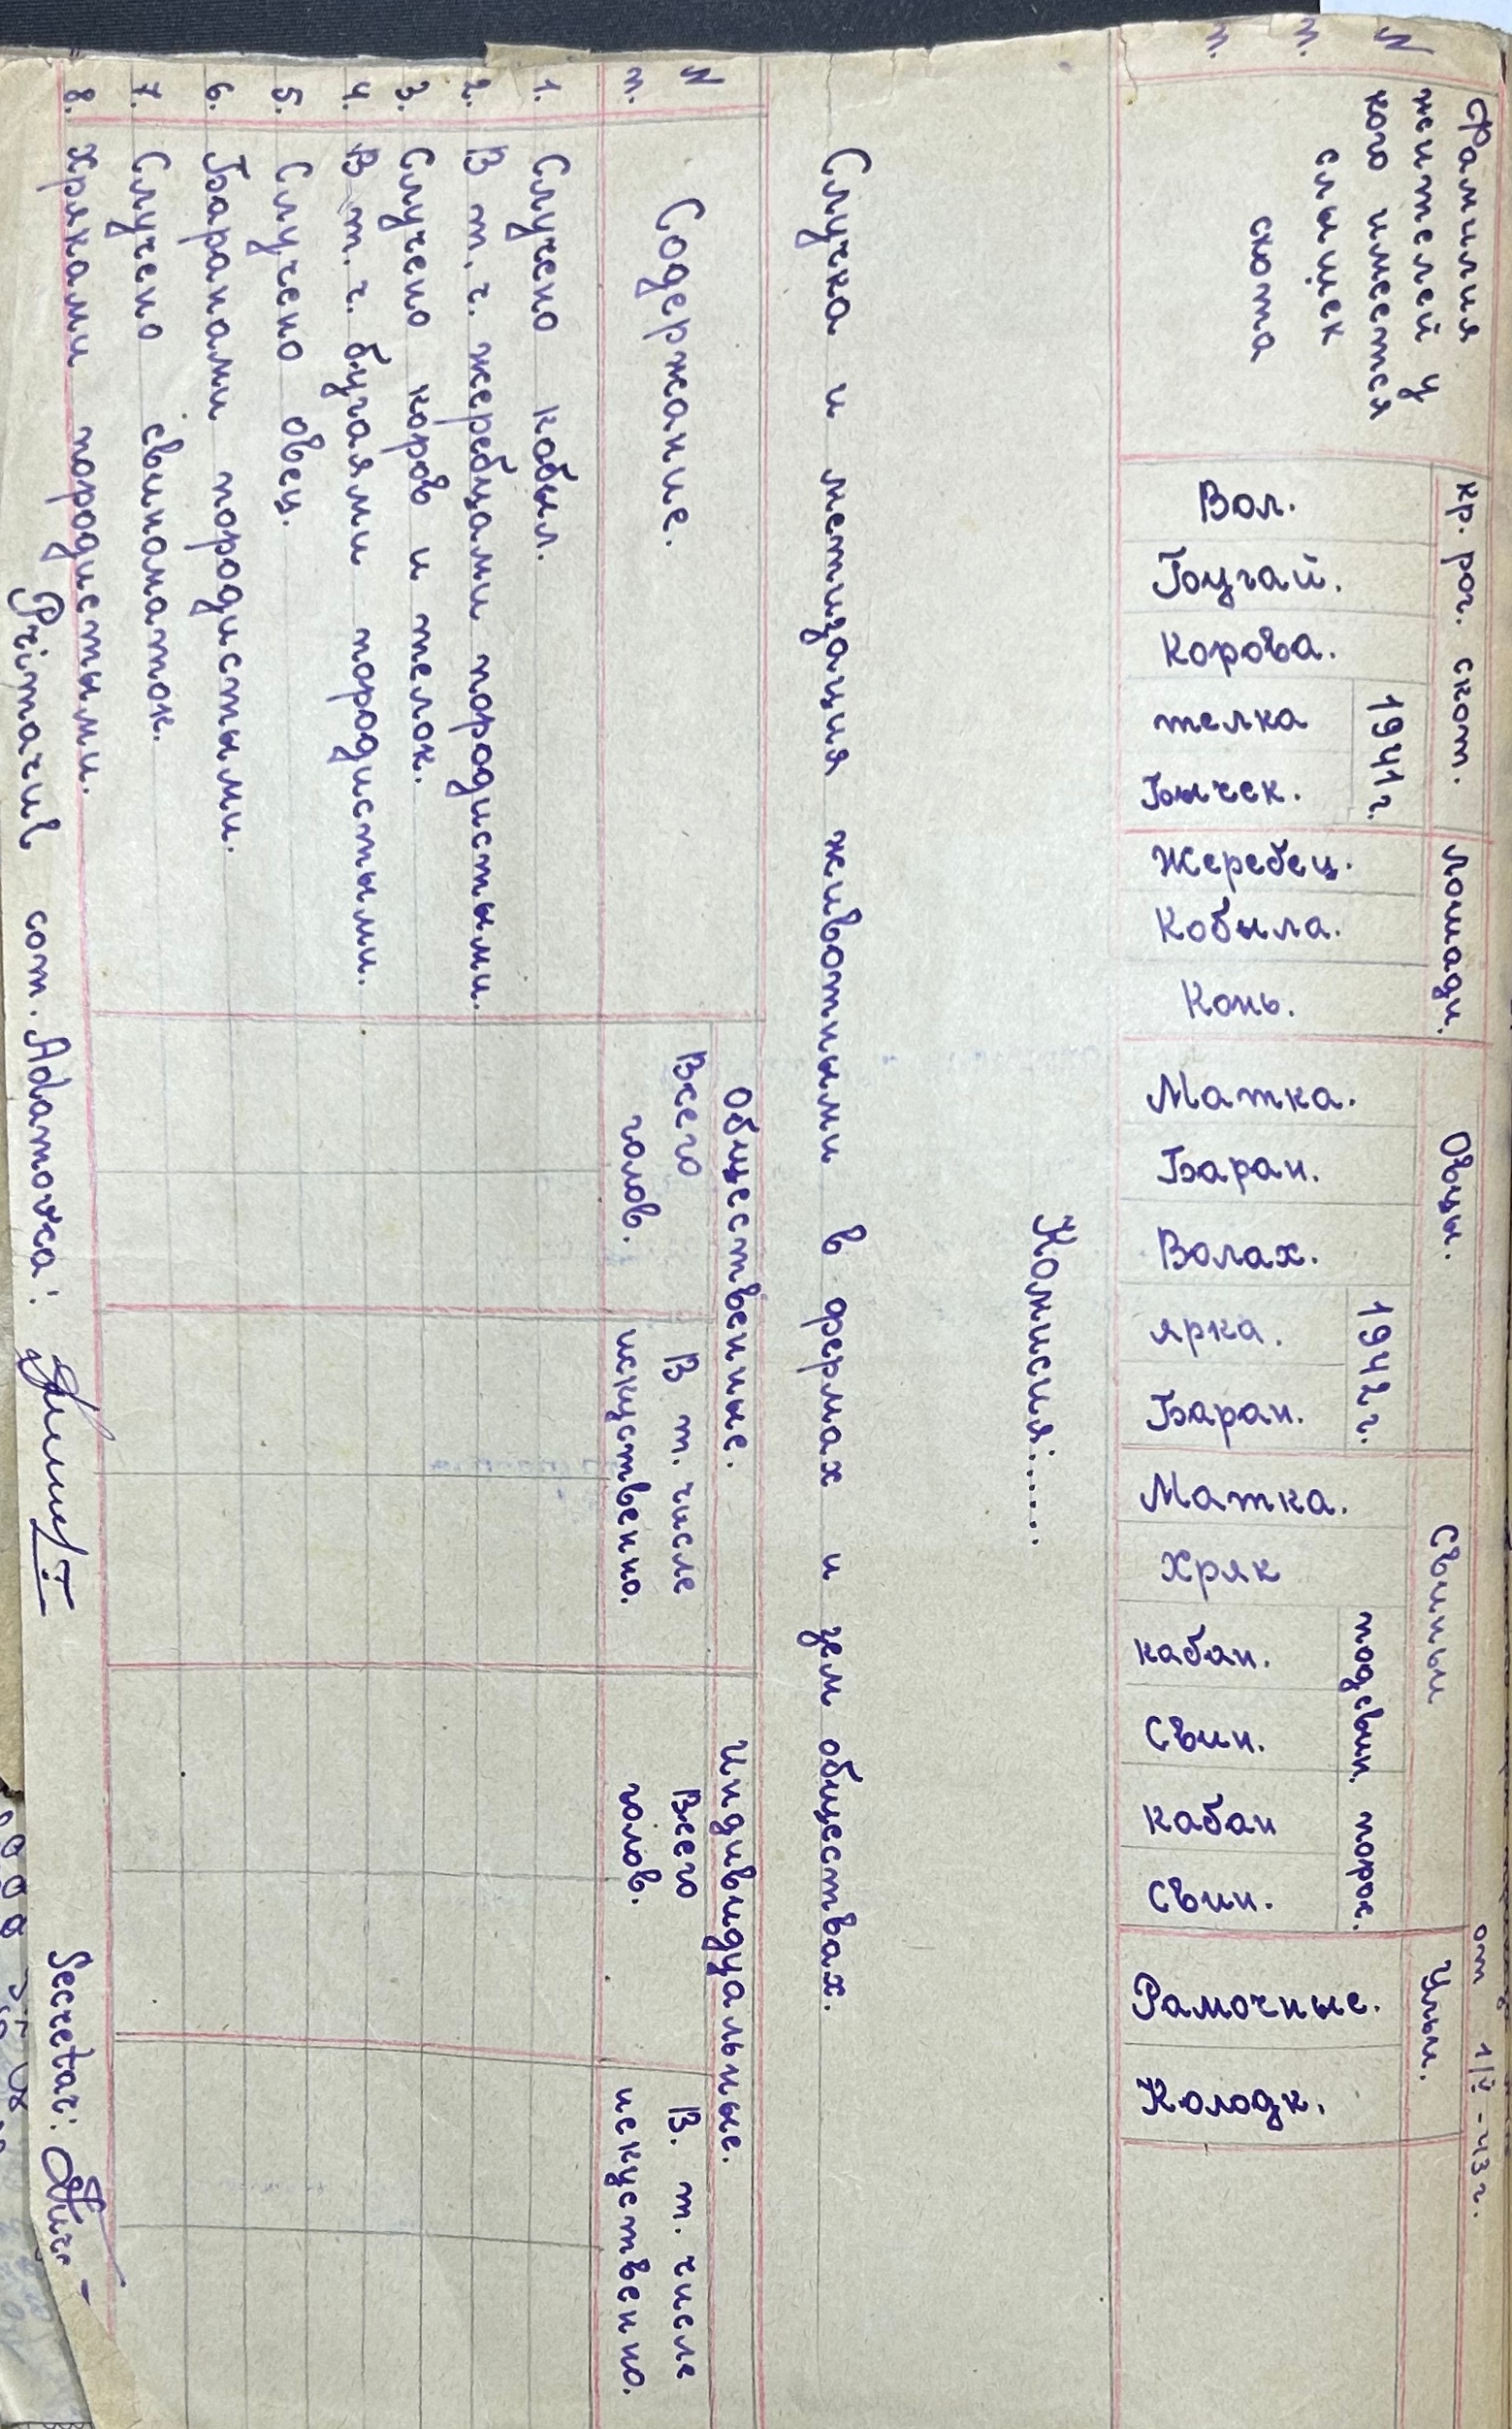 от 1/V - 43 г.
N п. п.
Фамилия жителей у кого имеется слыщек скота
кр. рог. скот.
Лошади.
Овцы.
Свиньи
Ульи.
1941 г.
1942 г.
подсвин.
порос.
Вол.
Бугай.
Корова.
телка
Бычек.
Жеребец.
Кобыла.
Конь.
Матка.
Баран.
Валах.
ярка.
Баран.
Матка.
Хряк
кабан.
Свин.
кабан
свин.
Рамочные.
Колодк.
Комисия:.....
Случка и метизация животными в фермах и зем обществах.
N п.
Содержание.
Общественные.
Индивидуальные.
Всего голов.
В т. числе искуственно.
Всего голов.
В. т. числе искуственно.
1. Случено кобыл.
2. В т. ч. жеребцами породистыми.
3. Случено коров и телок.
4. В т. ч. бугаями породистыми.
5. Случено овец.
6. Баранами породистыми.
7. Случено свиноматок.
8. Хряками породистыми.
Primarul com. Adamovca:
Secretar: